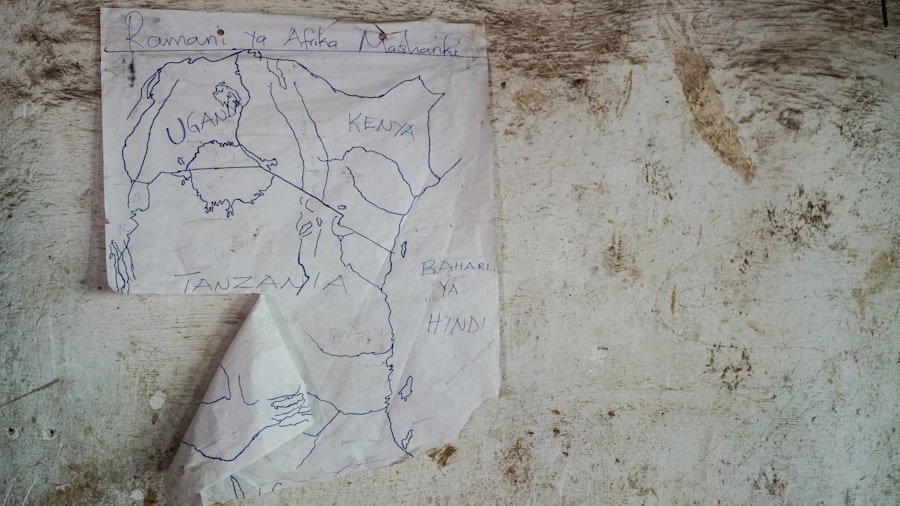 Ramani ya Afrika Mashariki
UGANDA
KENYA
TANZANIA
BAHARI
YA
HINDI